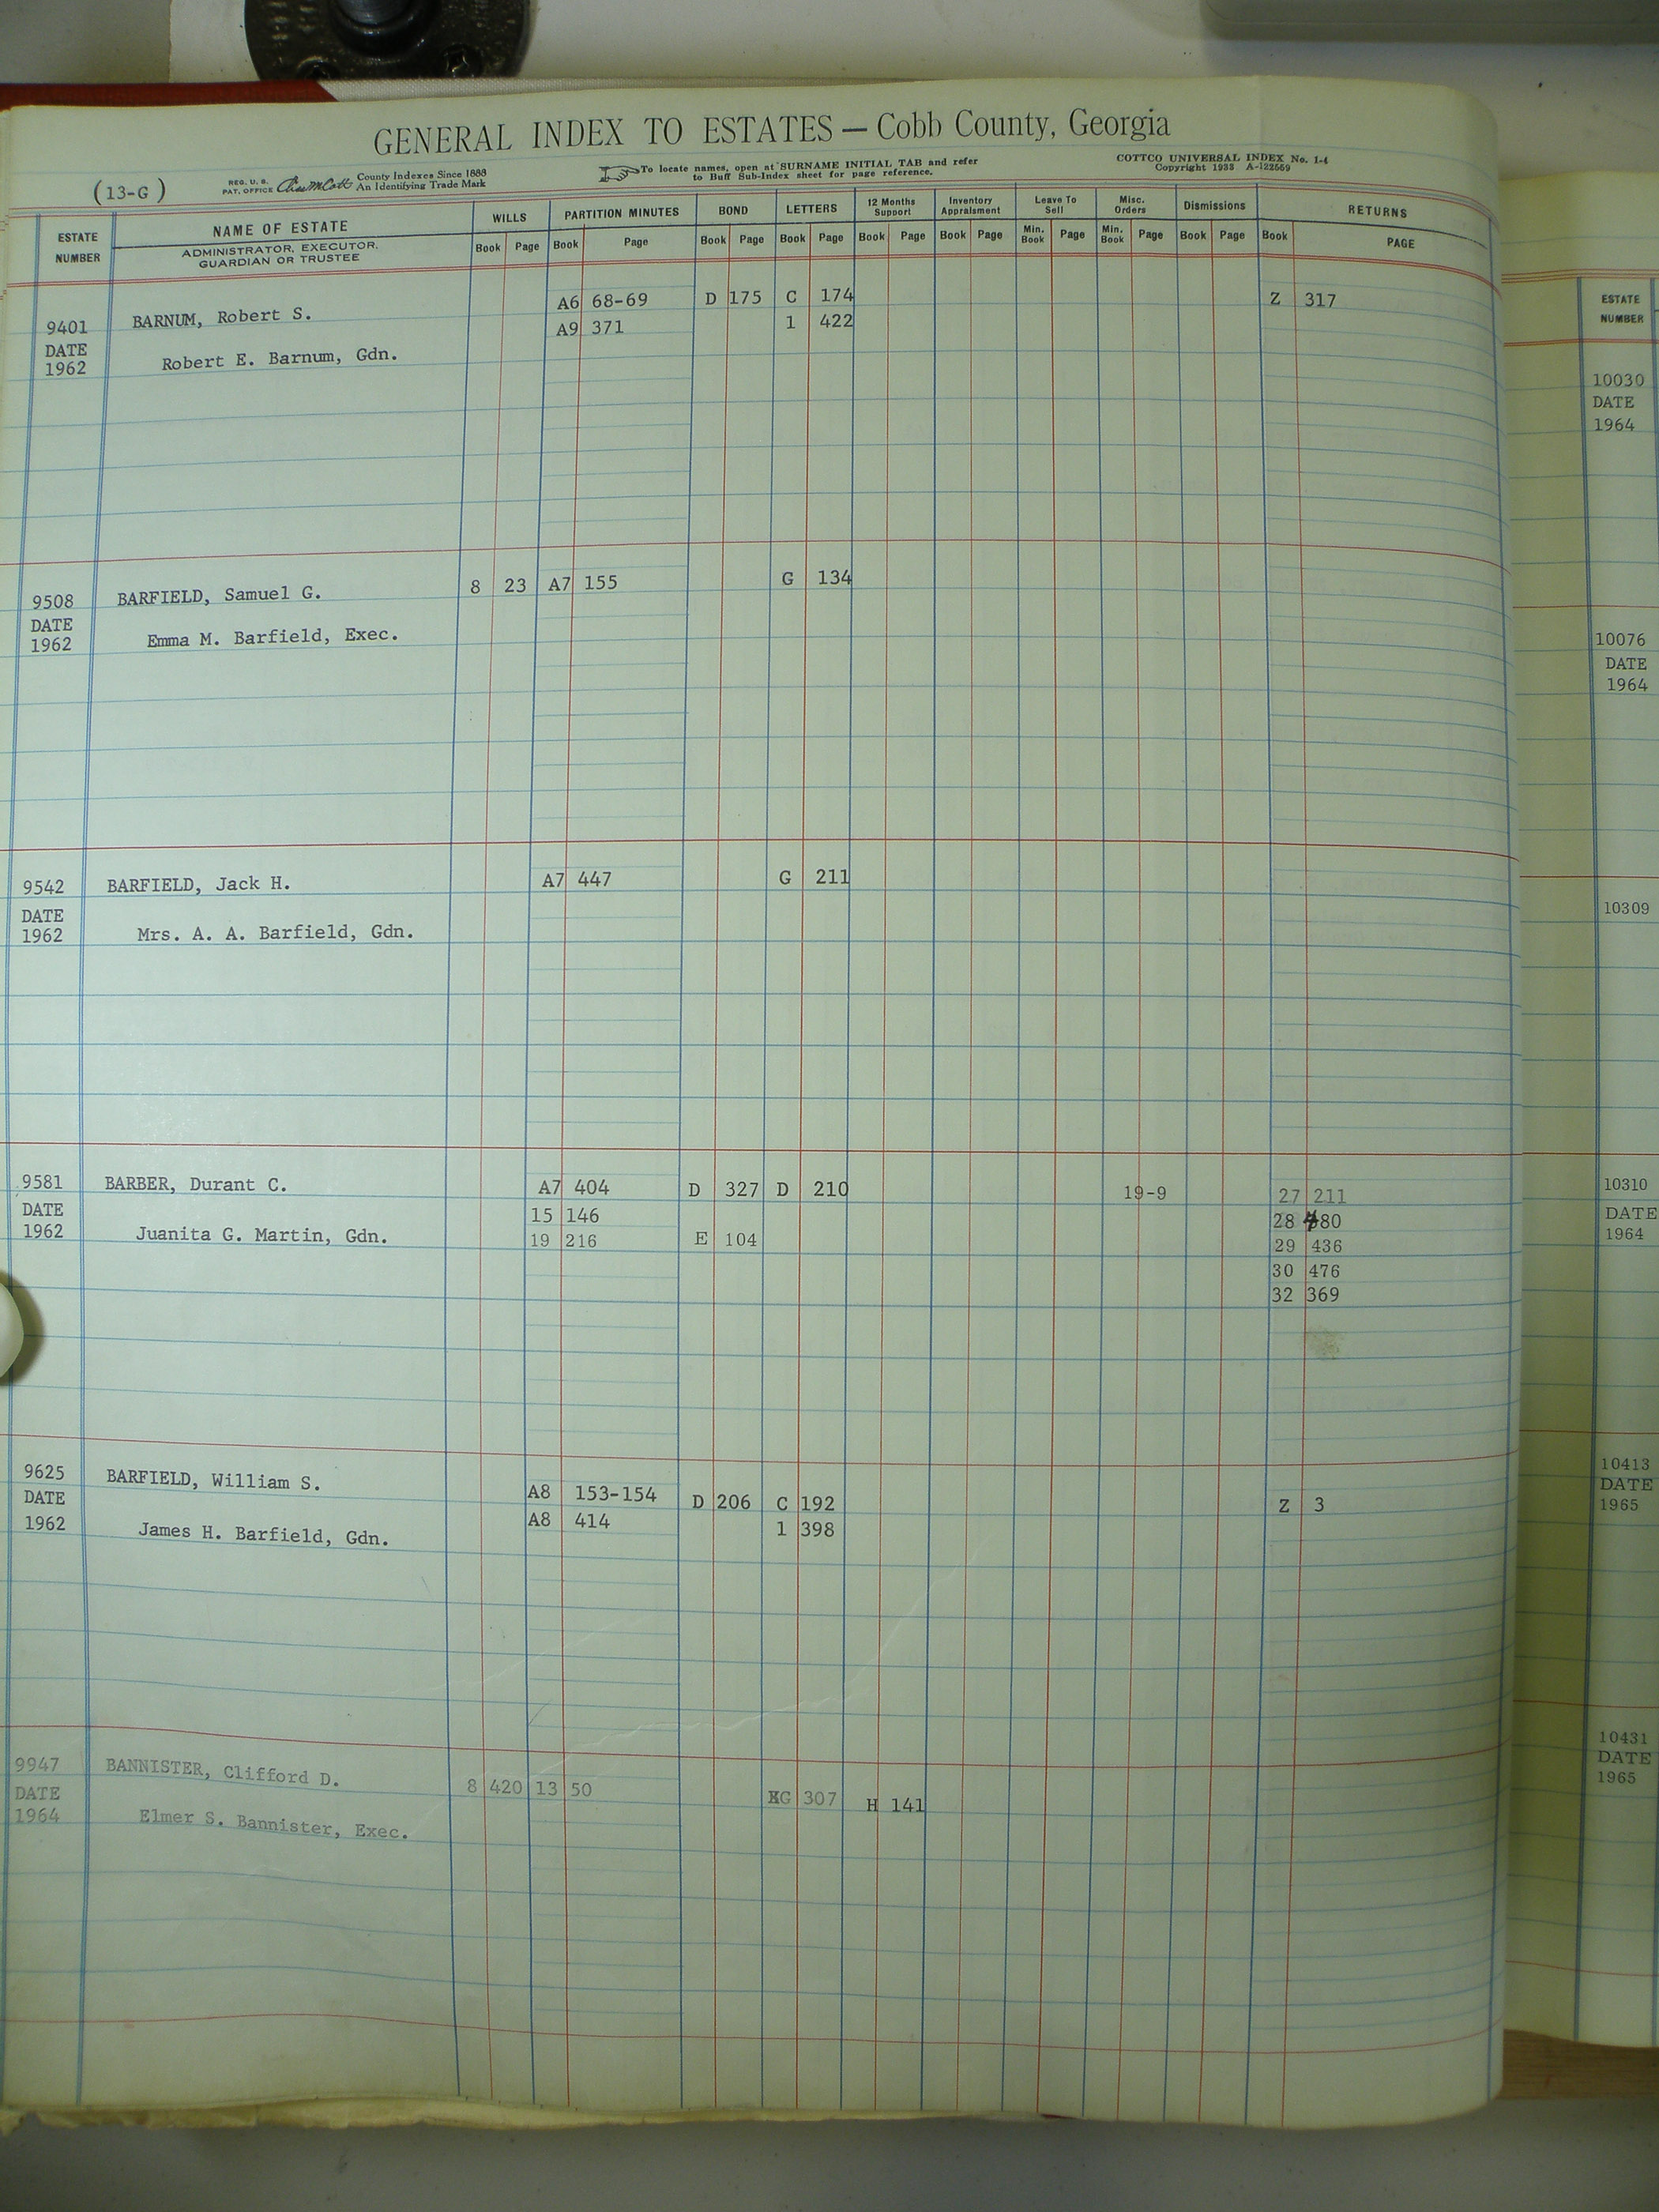 GENERAL INDEX TO ESTATES — Cobb County, Georgia
(13-G)
REG. U. S. PAT. OFFICE County Indexes Since 1888 An Identifying Trade Mark
To locate names, open at SURNAME INITIAL TAB and refer to Buff Sub-Index sheet for page reference.
COTTCO UNIVERSAL INDEX No. 1-4
Copyright 1933 A-122559
ESTATE NUMBER NAME OF ESTATE WILLS PARTITION MINUTES BOND LETTERS 12 Months Support Inventory Appraisment Leave To Sell Misc. Orders Dismissions RETURNS
ADMINISTRATOR, EXECUTOR, GUARDIAN OR TRUSTEE Book Page Book Page Book Page Book Page Book Page Book Page Min. Book Page Min. Book Page Book Page Book PAGE
A6 68-69 D 175 C 174 Z 317
9401 BARNUM, Robert S. A9 371 1 422
DATE
1962 Robert E. Barnum, Gdn.
9508 BARFIELD, Samuel G. 8 23 A7 155 G 134
DATE
1962 Emma M. Barfield, Exec.
9542 BARFIELD, Jack H. A7 447 G 211
DATE
1962 Mrs. A. A. Barfield, Gdn.
9581 BARBER, Durant C. A7 404 D 327 D 210 19-9 27 211
DATE 15 146 28 480
1962 Juanita G. Martin, Gdn. 19 216 E 104 29 436
30 476
32 369
9625 BARFIELD, William S. A8 153-154 D 206 C 192 Z 3
DATE A8 414 1 398
1962 James H. Barfield, Gdn.
9947 BANNISTER, Clifford D. 8 420 13 50 G 307 H 141
DATE
1964 Elmer S. Bannister, Exec.
ESTATE NUMBER
10030
DATE
1964
10076
DATE
1964
10309
10310
DATE
1964
10413
DATE
1965
10431
DATE
1965